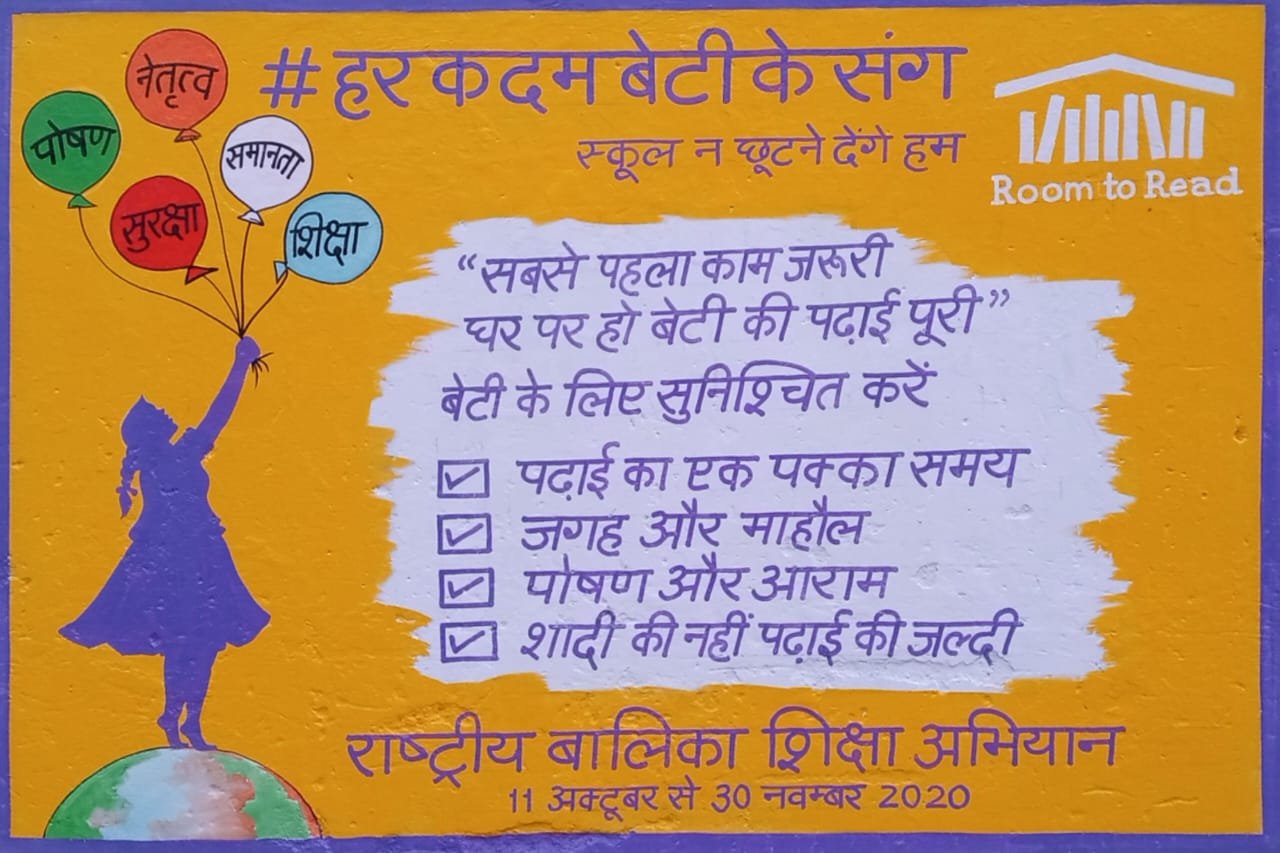 #हर कदम बेटी के संग
स्कूल न छूटने देंगे हम
Room to Read
नेतृत्व
पोषण
समानता
सुरक्षा
शिक्षा
“सबसे पहला काम जरूरी
घर पर हो बेटी की पढ़ाई पूरी”
बेटी के लिए सुनिश्चित करें
पढ़ाई का एक पक्का समय
जगह और माहौल
पोषण और आराम
शादी की नहीं पढ़ाई की जल्दी
राष्ट्रीय बालिका शिक्षा अभियान
11 अक्टूबर से 30 नवम्बर 2020